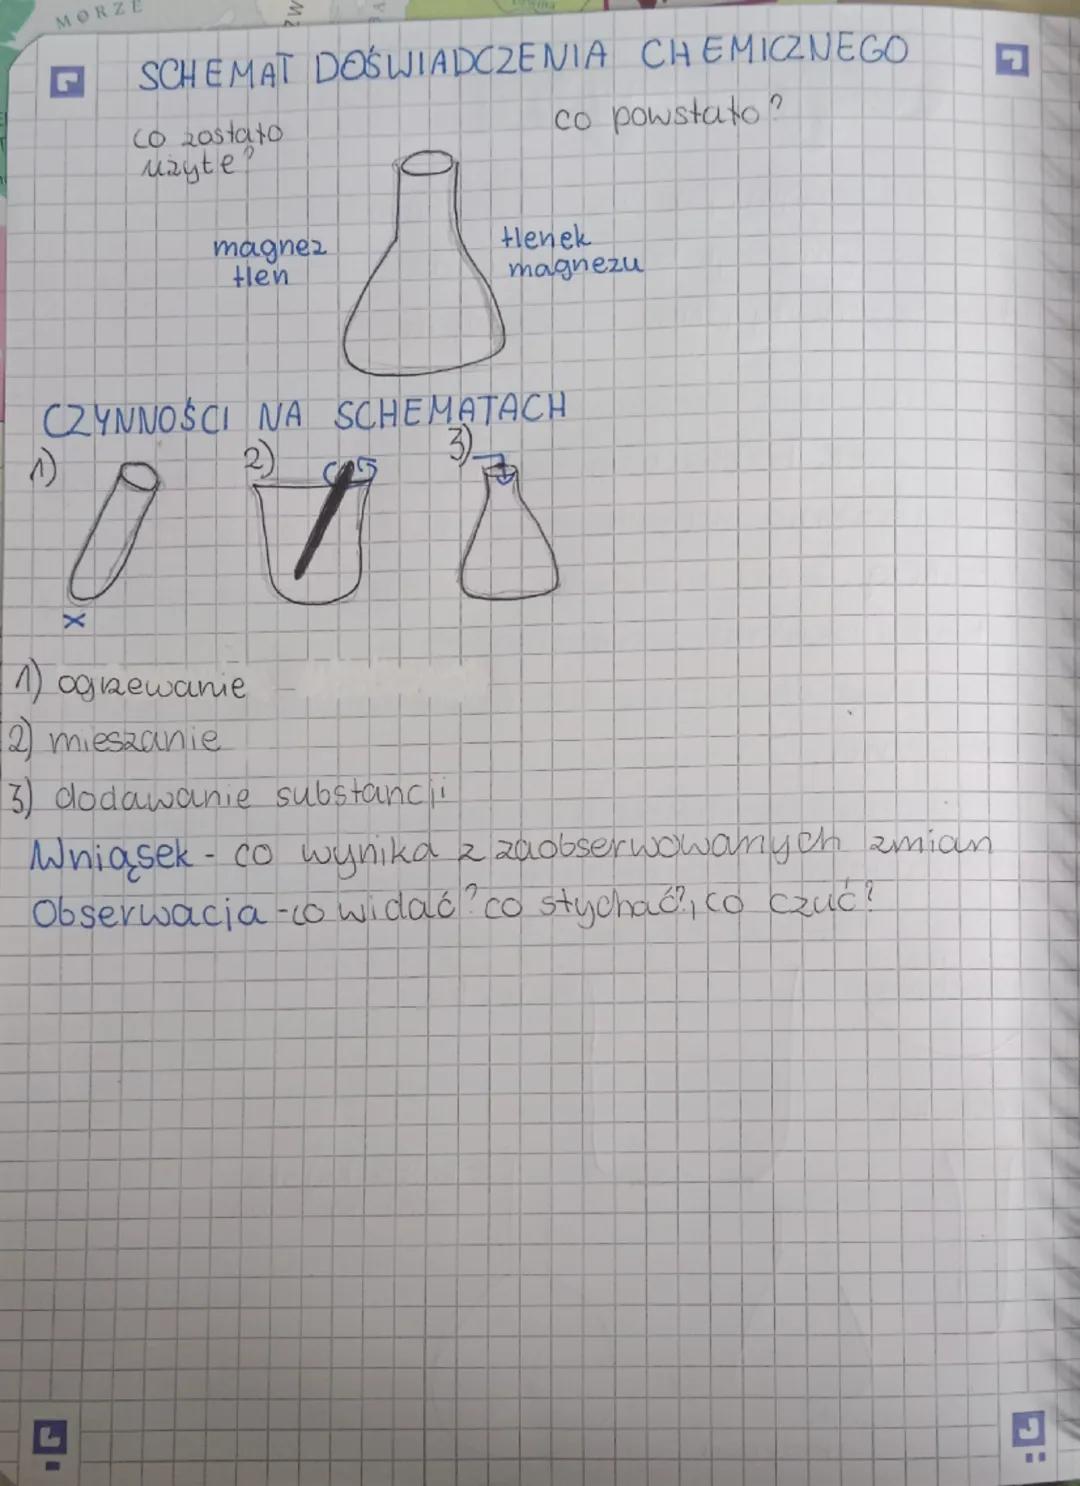 MORZE
SCHEMAT DOŚWIADCZENIA CHEMICZNEGO
co zostało
użyte?
co powstało?
magnez
tlen
tlenek
magnezu
CZYNNOŚCI NA SCHEMATACH
1)
2)
3)
x
1) ogrzewanie
2) mieszanie
3) dodawanie substancji
Wniąsek - co wynika z zaobserwowanych zmian
Obserwacja - co widać? co słychać?, co czuć?